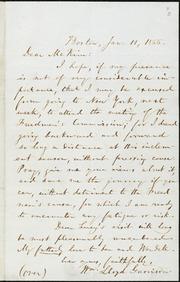 Boston, Jan. 11, 1866.
Dear McKim:
I hope, if my presence
is not of very considerable im-
portance, that I may be excused
from going to New York, next
week, to attend the meeting of the
Freedmen's Commission; for I dread
going backward and forward
so long a distance at this inclem-
ent season, without pressing cause.
Pray give me your views about it,
and save me the journey if you
can without detriment to the freed-
men's cause, for which I am ready
to encounter any fatigue or risk.
Dear Lucy's visit will long
be most pleasurably
My fatherly love to her and Wendell.
ever yours, faithfully,
(over) Wm. Lloyd Garrison.